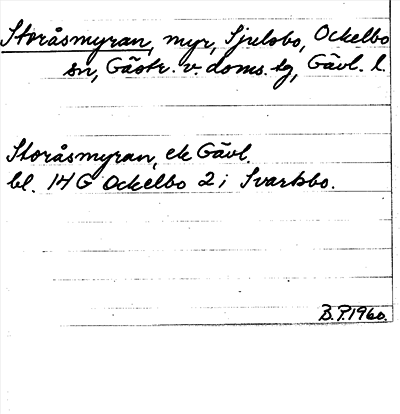 Storåsmyran, myr, Sjulsbo, Ockelbo
sn, Gästr. v. doms. tg, Gävl. l.
Storåsmyran, ek Gävl.
bl. 14 G Ockelbo 2 i Svartsbo.
B.P.1960.